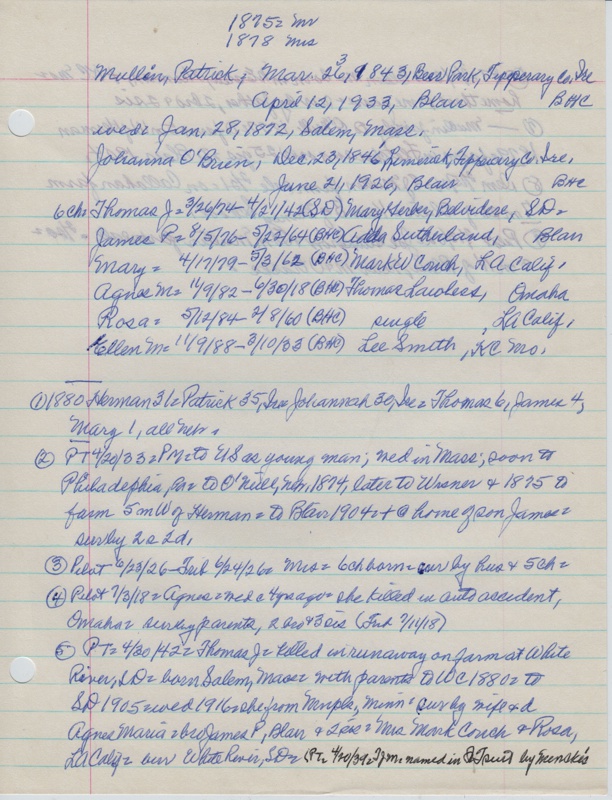 1875= Mr
1878 Mrs
Mullin, Patrick, Mar. 26, 1843, Park, Tipperary Co, Ire
3
April 12, 1933, Blair BHC
wed= Jan, 28, 1872, Salem, Mass.
Johanna O'Brien, Dec, 23, 1846, Limerick, Tipperary Co, Ire,
June 21, 1926, Blair BHC
6 ch= Thomas J= 3/26/74 - 4/21/42 (SD) Mary, Belvidere, SD=
James P= 8/5/76 - 5/22/64 (BHC) Adda Sutherland, Blair
Mary= 4/17/79 - 5/3/62 (BHC) Mark W Couch, LA Calif,
Agnes M= 11/9/82 - 6/30/18 (BHC) Thomas Lawless, Omaha
Rosa= 5/12/84 - 2/8/60 (BHC) single, LA Calif,
Ellen M= 11/9/88 - 3/10/33 (BHC) Lee Smith, KC Mo,
① 1880 Herman 31= Patrick 35, Ire Johannah 30, Ire= Thomas 6, James 4,
Mary 1, all Neb=
② PT 4/20/33= PM= to US as young man; wed in Mass; soon to
Philadelphia, Pa= to O'Neill, Neb, 1874, later to Wisner & 1875 to
farm 5 m W of Herman= to Blair 1904= + @ home of son James=
surv by 2s 2d,
③ Pilot 6/23/26 - Trib 6/24/26= Mrs= 6 ch born= sur by hus & 5 ch=
④ Pilot 7/3/18= Agnes= wed c 4 yrs ago= she killed in auto accident,
Omaha= surv by parents, 2 bro & 3 sis (Trib 7/11/18)
⑤ PT= 4/30/42= Thomas J= killed in runaway on farm at White
River, SD= born Salem, Mass= with parents to WC 1880= to
SD 1905= wed 1916= she from Mnpls, Minn= sur by wife & d
Agnes Maria= bro James P, Blair & 2 sis= Mrs Mark Couch & Rosa,
LA Calif= bur White River, SD= (PT= 4/20/39= TJM= named in suit by